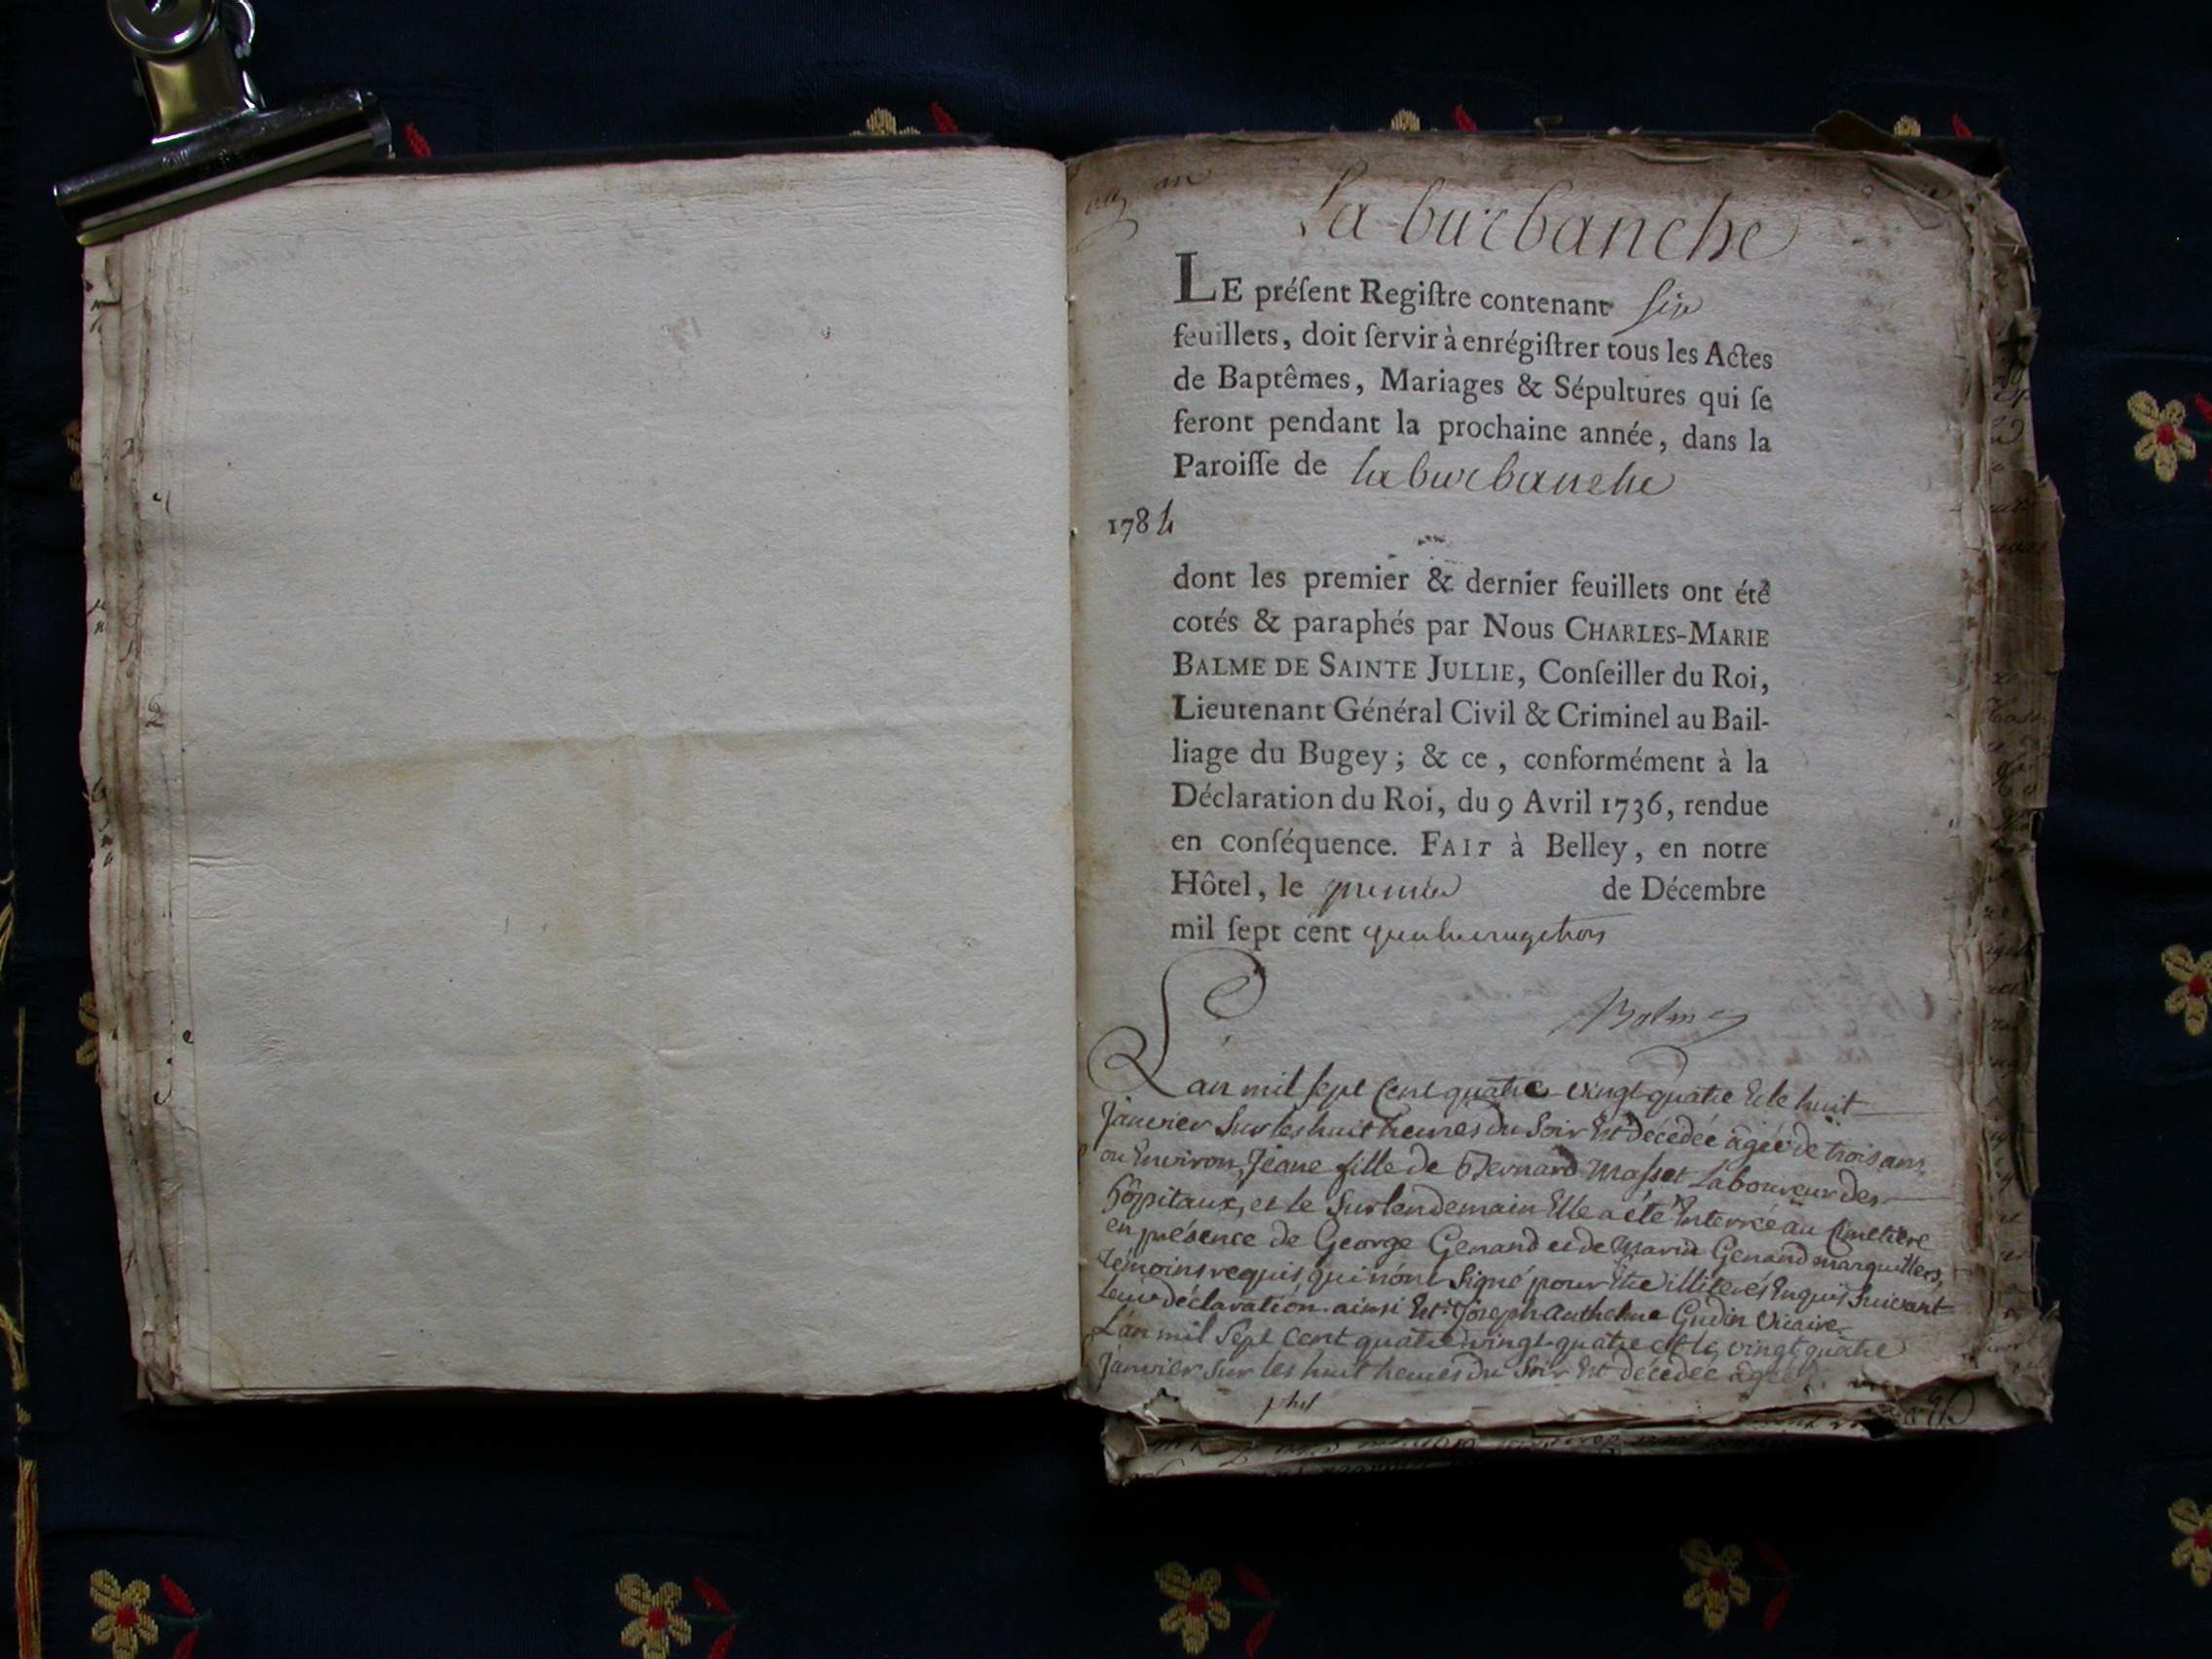 La burbanche
LE préſent Regiſtre contenant six
feuillets, doit ſervir à enrégiſtrer tous les Actes
de Baptêmes, Mariages & Sépultures qui ſe
feront pendant la prochaine année, dans la
Paroiſſe de la burbanche
1784
dont les premier & dernier feuillets ont été
cotés & paraphés par Nous CHARLES-MARIE
BALME DE SAINTE JULLIE, Conſeiller du Roi,
Lieutenant Général Civil & Criminel au Bail-
liage du Bugey; & ce, conformément à la
Déclaration du Roi, du 9 Avril 1736, rendue
en conſéquence. FAIT à Belley, en notre
Hôtel, le premier de Décembre
mil ſept cent quatrevingttrois
Balme
L'an mil sept cent quatre vingt quatre Et le huit
Janvier sur les huit heures du Soir Est décédée âgée de trois ans
ou Environ, Jéane fille de Bernard Masset Laboureur des
hôpitaux, et le surlendemain Elle a été Enterrée au Cimetière
en présence de George Genand et de Marin Genand marguilliers,
témoins requis qui n'ont Signé pour Etre illiterés Enquis Suivant
leur déclaration. ainsi Est. Joseph Anthelme Gudin Vicaire
L'an mil Sept Cent quatre vingt quatre et le vingt quatre
Janvier sur les huit heures du Soir Est décédée âgée